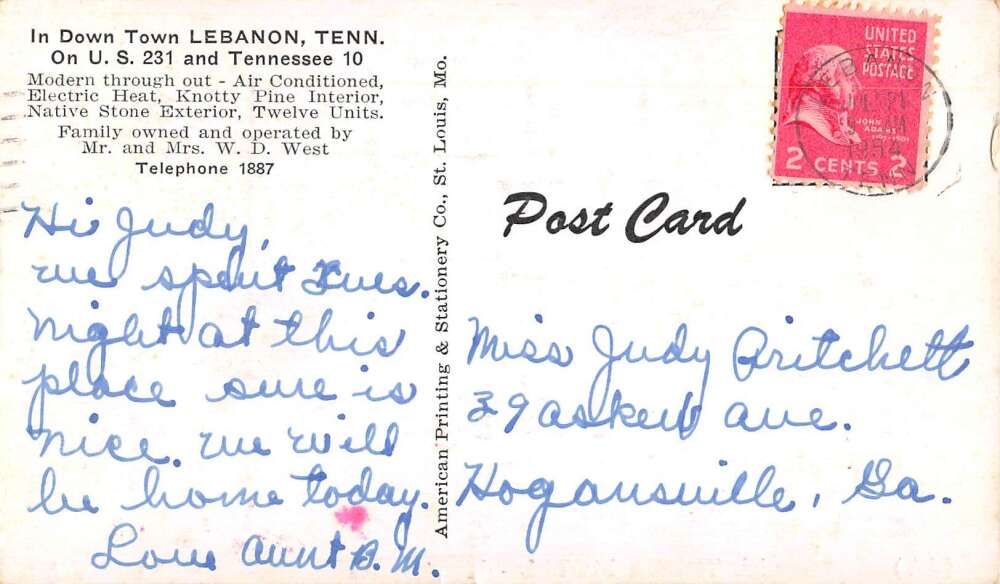 In Down Town LEBANON, TENN.
On U. S. 231 and Tennessee 10
Modern through out - Air Conditioned,
Electric Heat, Knotty Pine Interior,
Native Stone Exterior, Twelve Units.
Family owned and operated by
Mr. and Mrs. W. D. West
Telephone 1887
Hi Judy,
we spent Tues.
night at this
place sure is
nice. we will
be home today.
Love Aunt B.M.
American Printing & Stationery Co., St. Louis, Mo.
Post Card
UNITED
STATES
POSTAGE
JOHN
ADAMS
2 CENTS 2
1954
Miss Judy Pritchett
39 askew ave.
Hogansville, Ga.